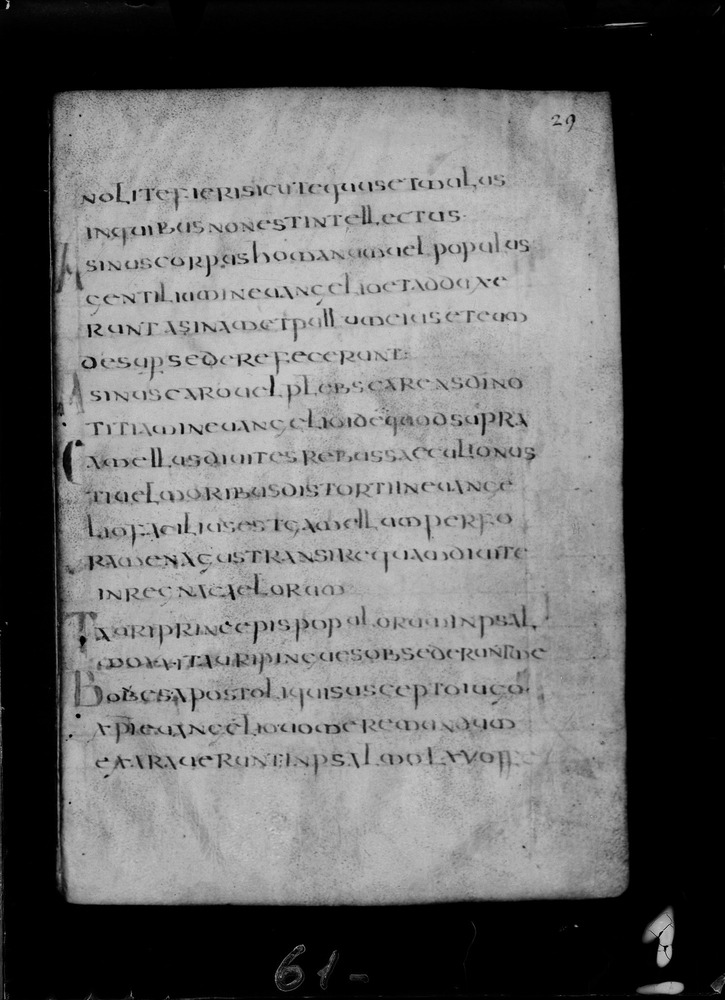 29
NOLITEFIERISICUTEQUUSETMULUS
INQUIBUSNONESTINTELLECTUS
ASINUSCORPUSHUMANUMUELPOPULUS
GENTILIUMINEUANGELIOETADDUXE
RUNTASINAMETPULLUMEIUSETEUM
DESUPSEDEREFECERUNT
ASINUSCAROUELPLEBSEAREASDINO
TITIAMINEUANGELIOIDEQUODSUPRA
CAMELLUSDIUITESREBUSSAECULIONUS
TIUELMORIBUSDISTORTIINEUANGE
LIOFACILIUSESTCAMELLUMPERFO
RAMENACUSTRANSIREQUAMDIUITE
INREGNACAELORUM
TAURIPRINCEPISPOPULORUMINPSAL
MOXXITAURIPINGUESOBSEDERUNTME
BOBESAPOSTOLIQUISUSCEPTOIUGO
APIEUANGELIOUOMEREMUNDUM
EXARAUERUNTINPSALMOLXVOFF
61-